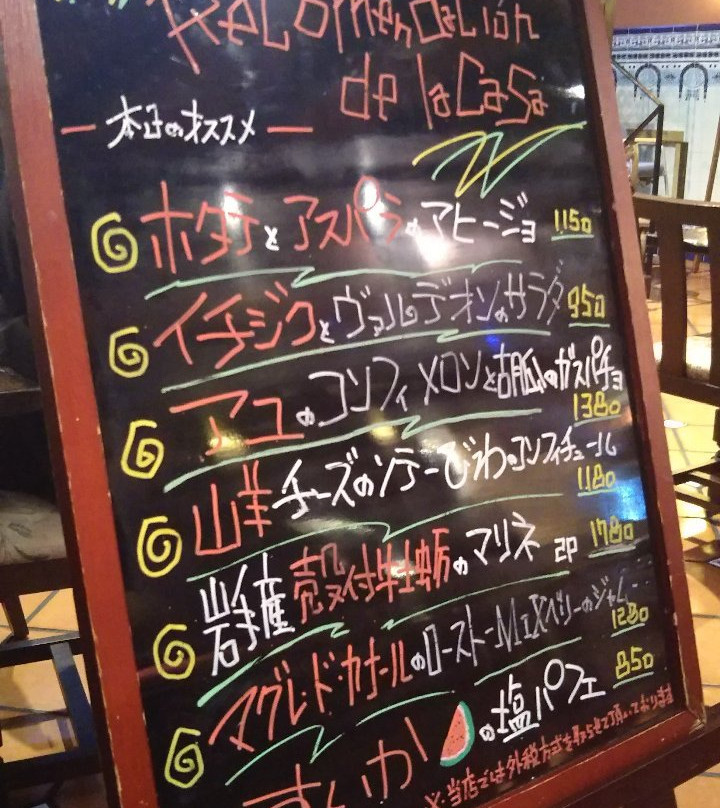 Recomendación
de la Casa
本日のオススメ
ホタテとアスパラのアヒージョ 1150
イチジクとヴァルデオンのサラダ 950
アユのコンフィ メロンと胡瓜のガスパチョ
1380
山羊チーズのソテーびわのコンフィチュール
1180
岩手産殻付牡蛎のマリネ 2P 1780
マグレ・ド・カナールのローストーMIXベリーのジャムー
1280
すいかの塩パフェ 850
※当店では外税方式を取らせて頂いております